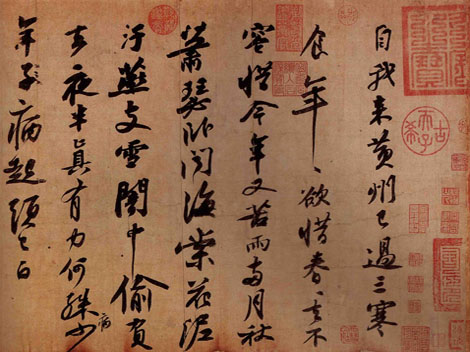 自我来黄州已過三寒
食年〻欲惜春〻去不
容惜今年又苦雨兩月秋
蕭瑟卧聞海棠花泥
汙燕支雪闇中偷負
去夜半真有力何殊病少
年子病起頭已白
古稀天子